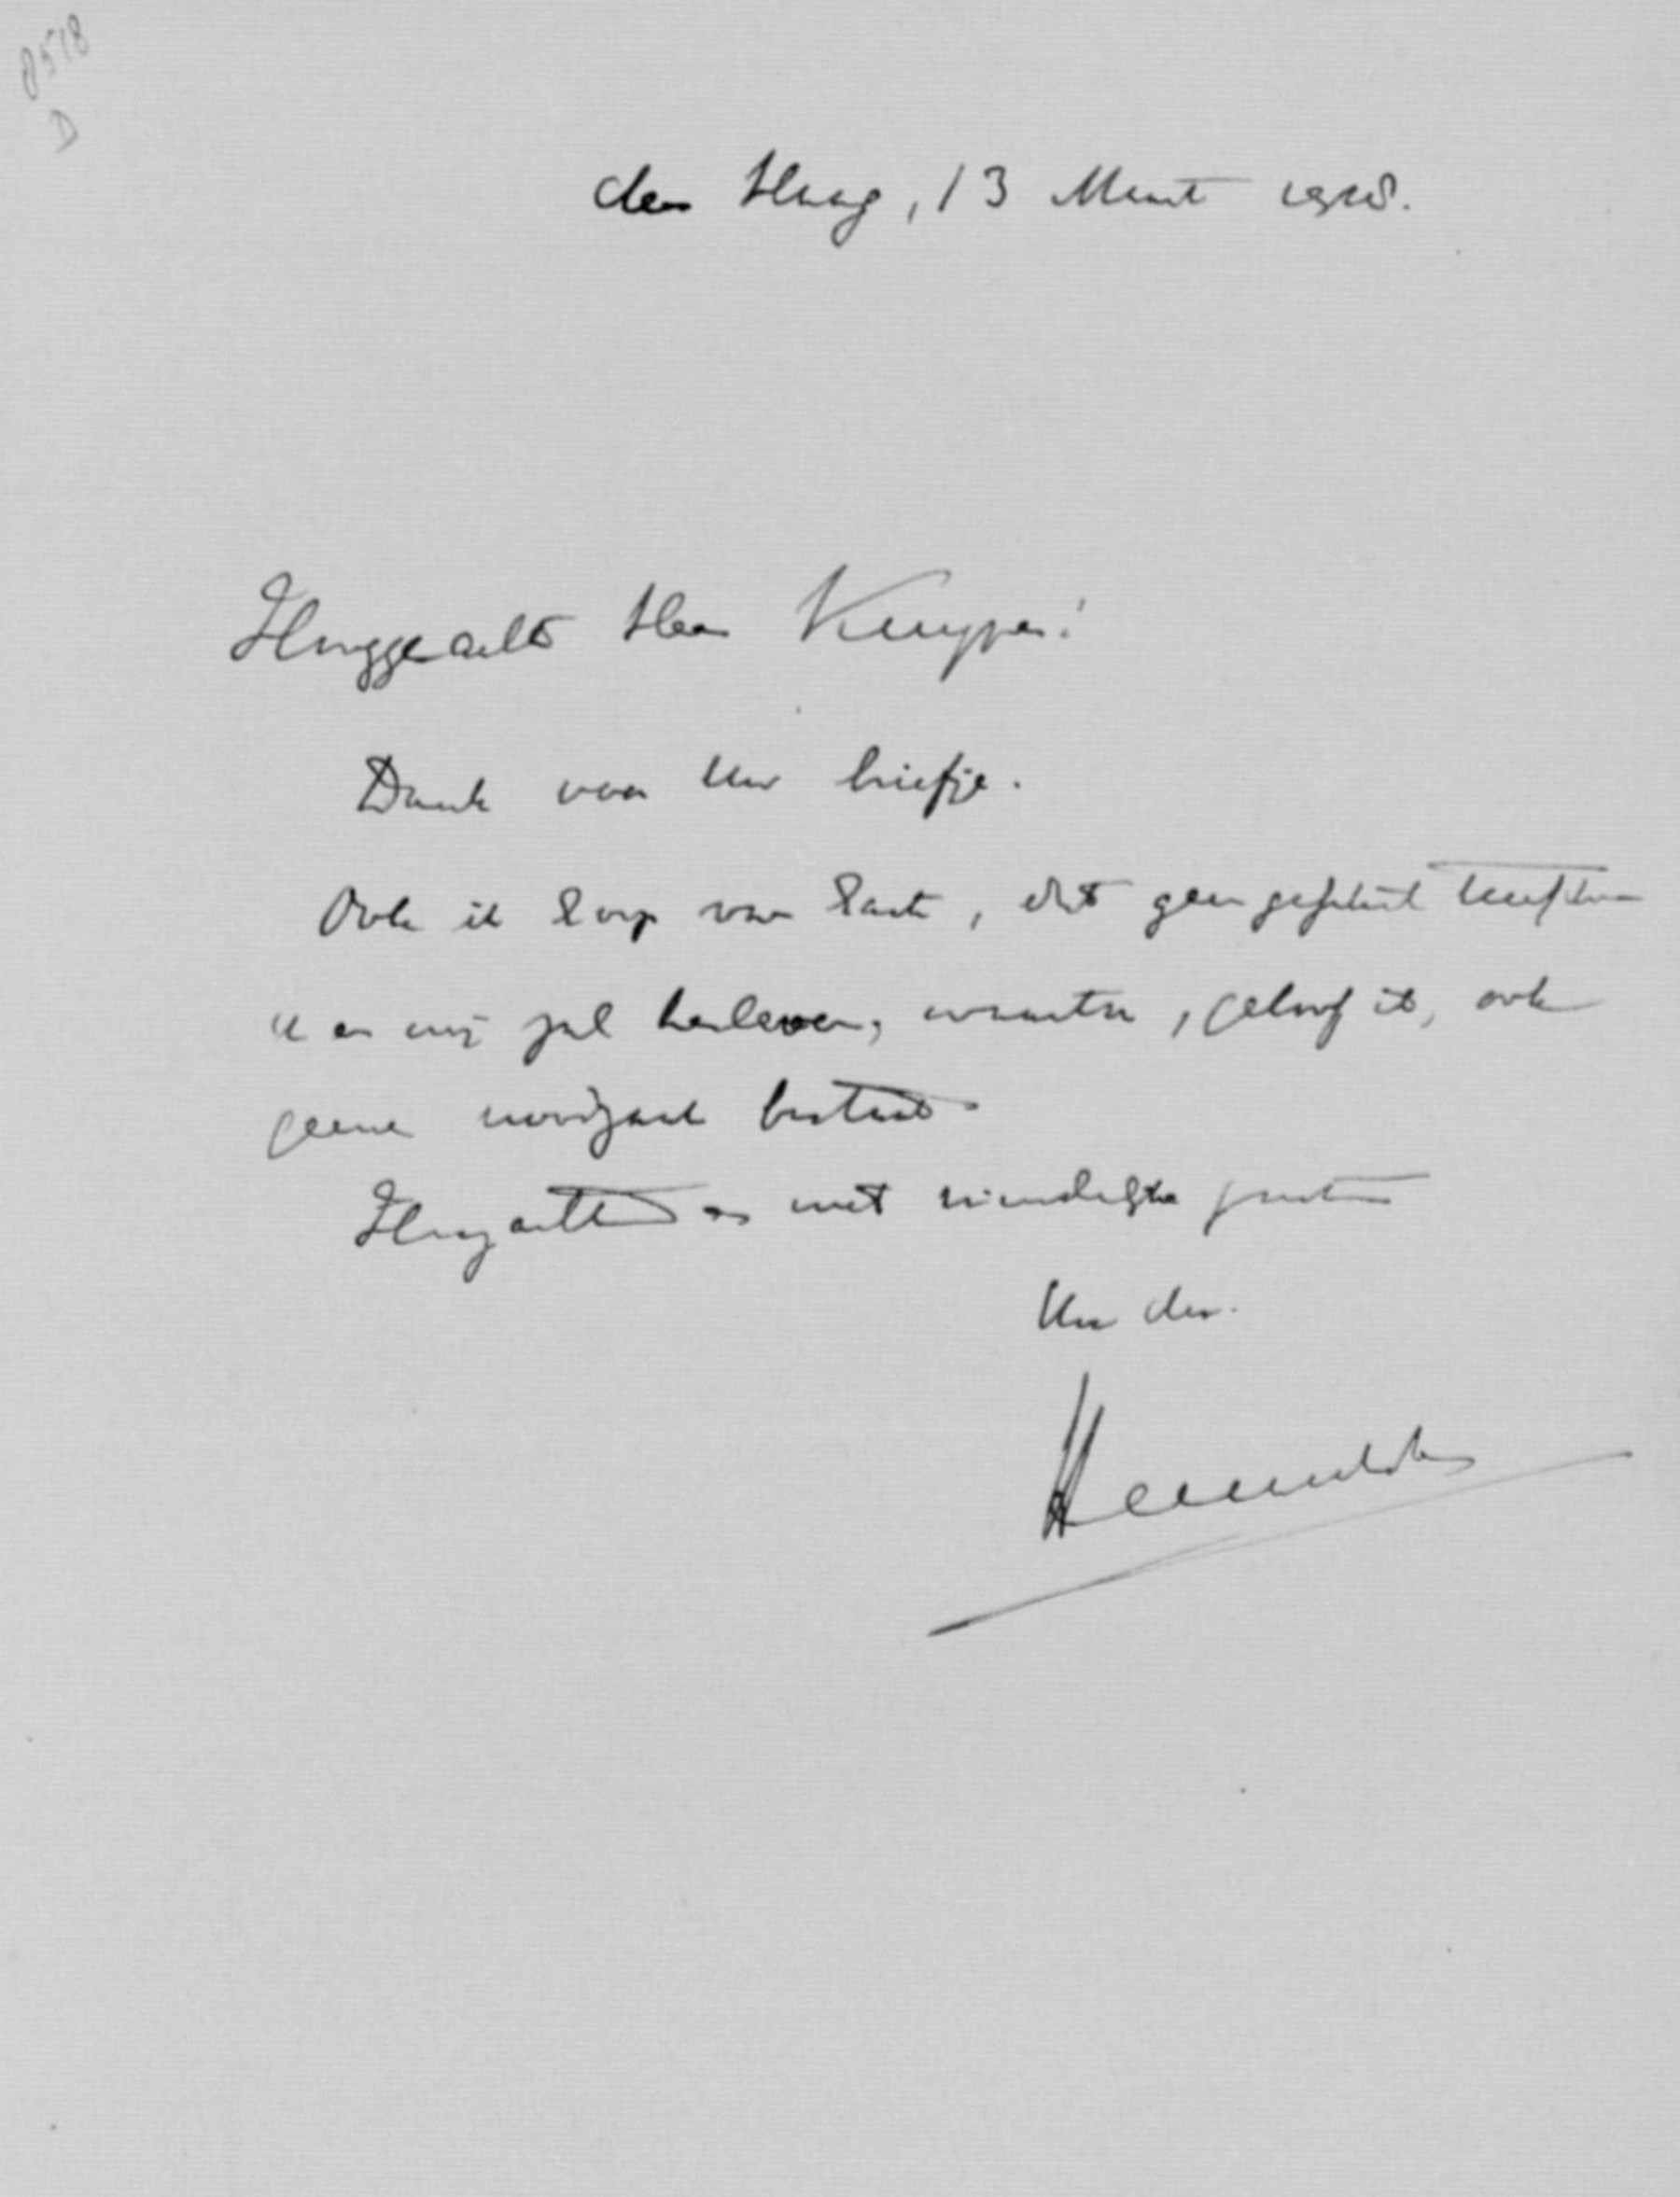 8518
D
den Haag, 13 Maart 1918.
Hooggeachte Heer Kuyper!
Dank voor Uw briefje.
Ook ik hoop van harte, dat geen geschil tusschen
u en mij zal herleven, waartoe, geloof ik, ook
geene noodzaak bestaat
Hoogachtend en met vriendelijke groeten
Uw dw.
Heemskerk